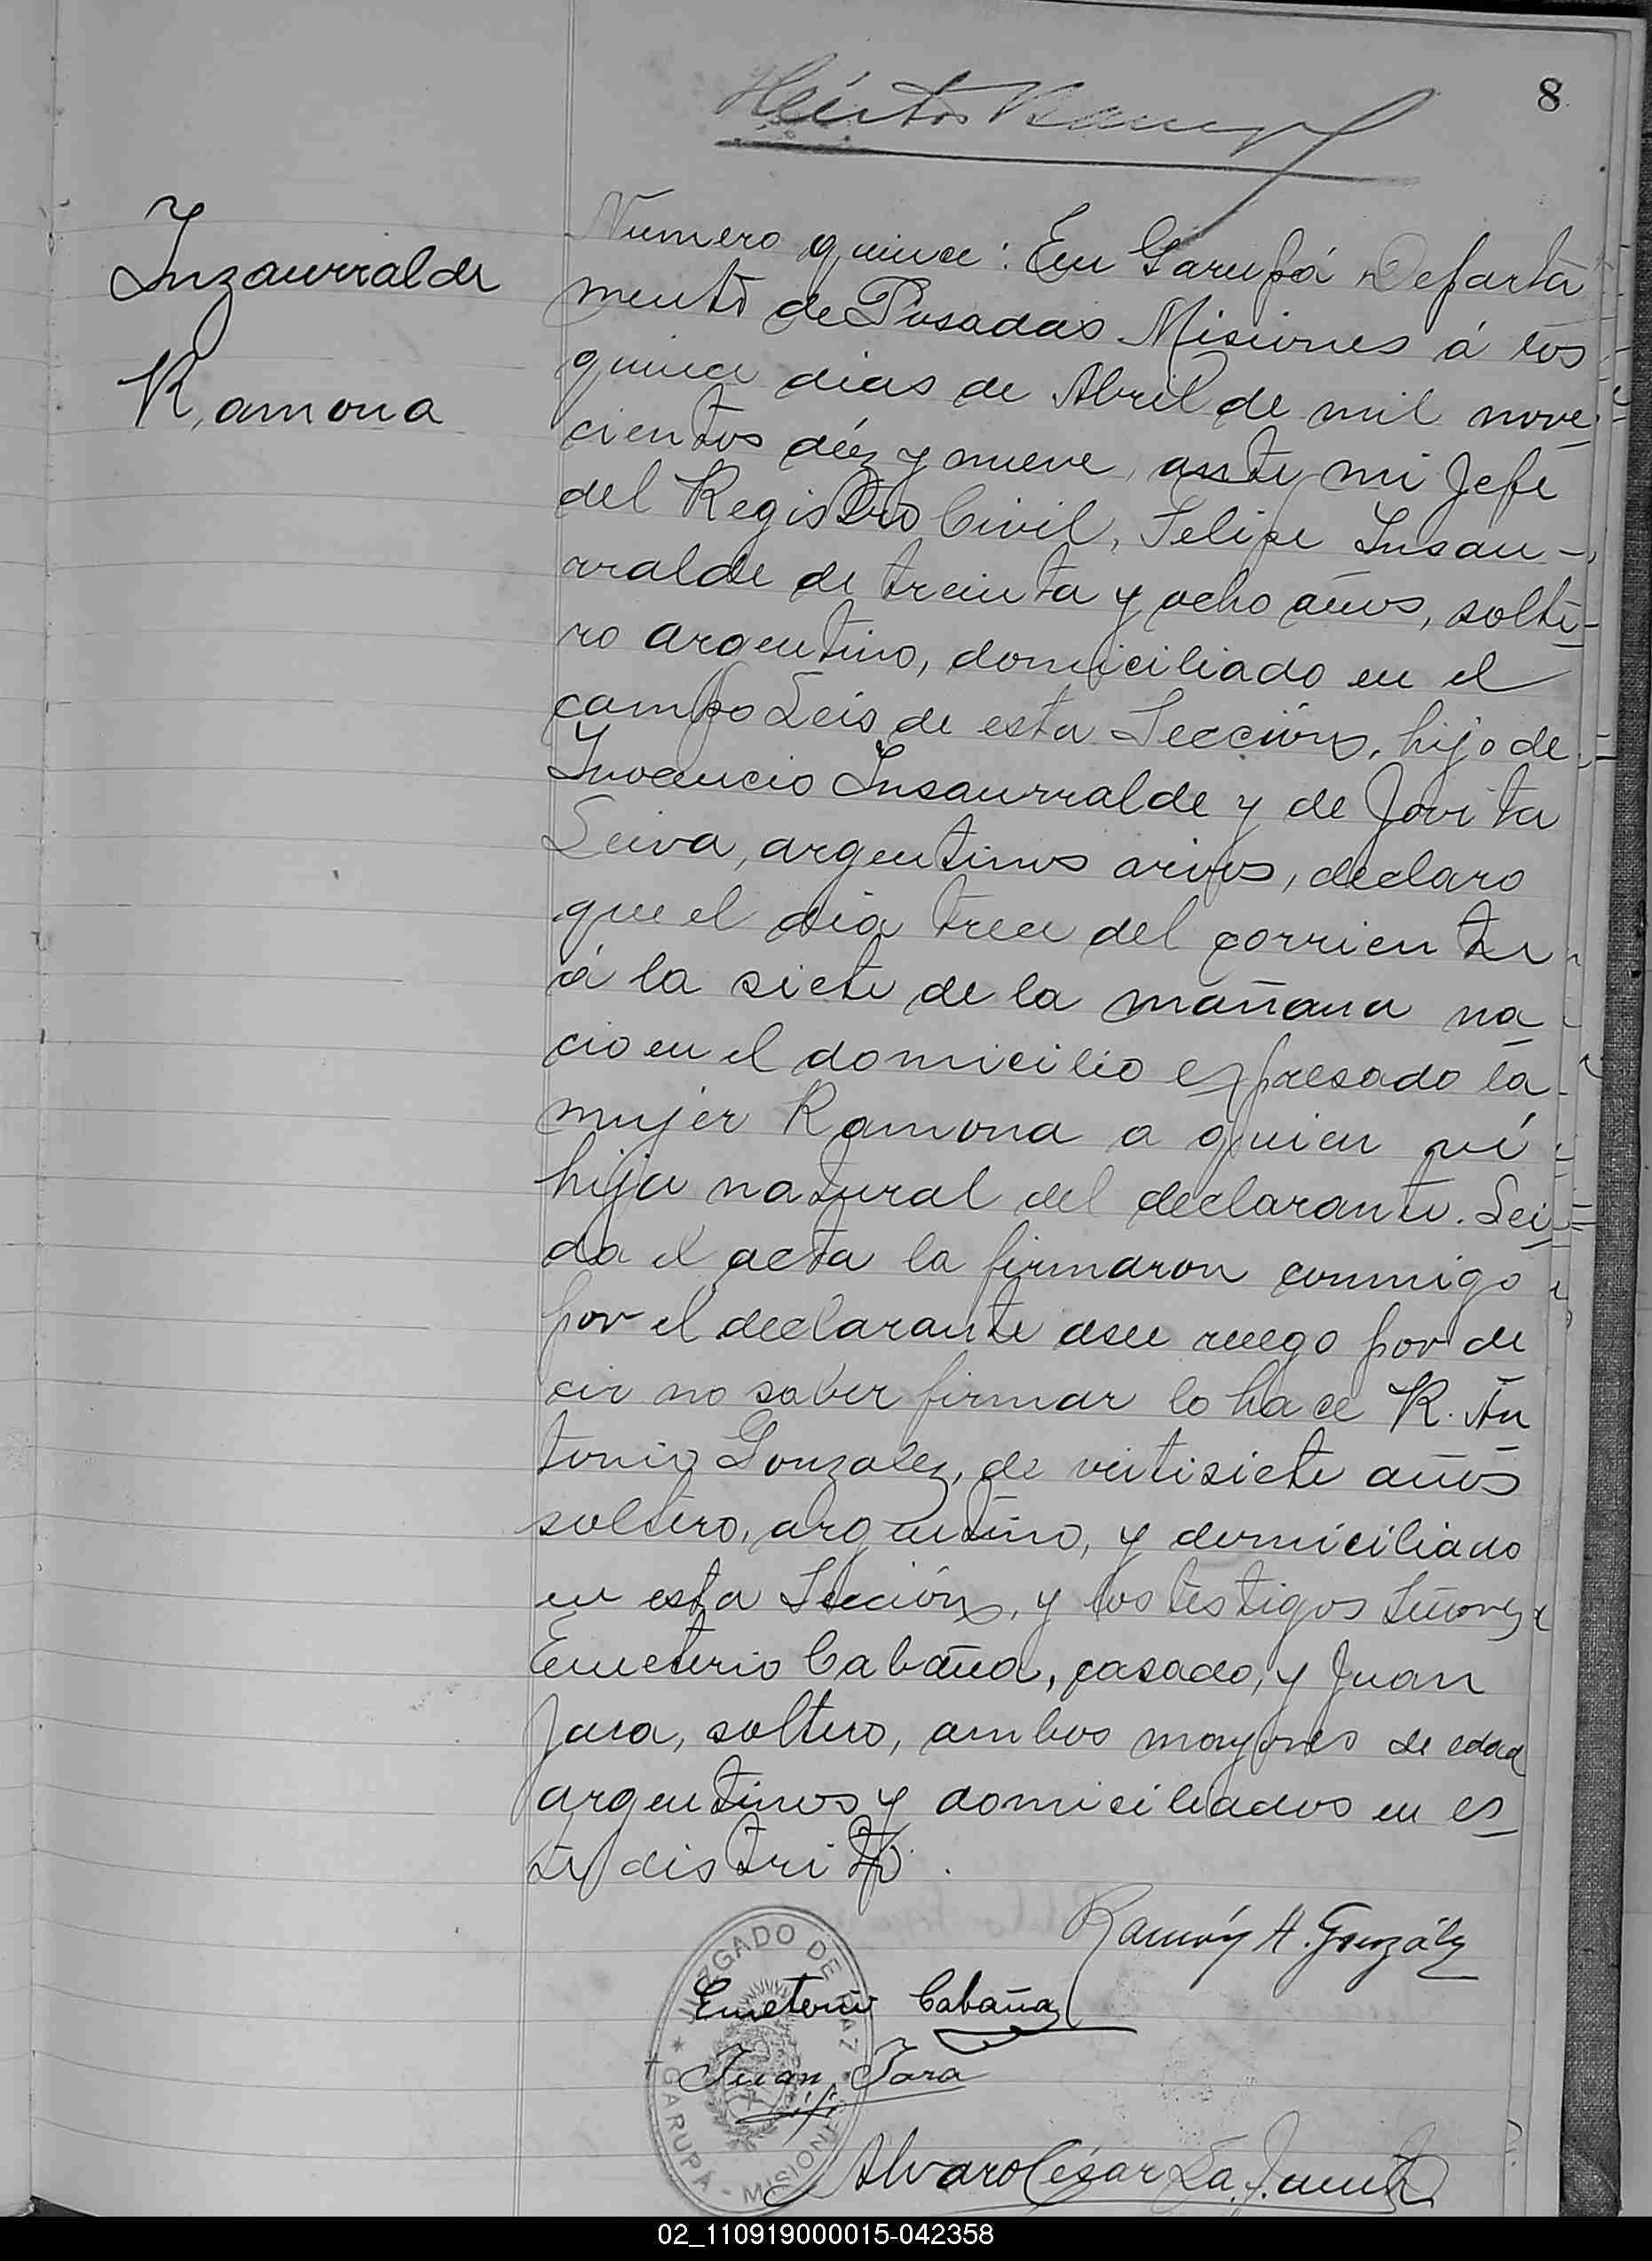 8
Inzaurralde
Ramona
Numero quince: En Garupá Departa
mento de Posadas Misiones á los
quince dias de Abril de mil nove
cientos diéz y nueve, ante mi Jefe
del Registro Civil, Felipe Insau-
rralde de treinta y ocho años, solte-
ro argentino, domiciliado en el
campo Seis de esta Sección, hijo de
Insaurralde y de Jovita
Leiva, argentinos, declaro
que el dia trece del corriente
á la siete de la mañana na
cio en el domicilio expresado la
mujer Ramona a quien ví
hija natural del declarante. Lei
da el acta la firmaron conmigo
por el declarante a su ruego por de
cir no saber firmar lo hace R. An
tonio Gonzalez, de veitisiete años
soltero, argentino, y domiciliado
en esta Sección, y los testigos Señores
Emeterio Cabaña, casado, y Juan
Jara, soltero, ambos mayores de edad
argentinos y domiciliados en es
te distrito.
Ramón A. González
Emeterio Cabaña
Juan Jara
Alvaro César La
JUZGADO DE PAZ
GARUPÁ - MISIONES
02_110919000015-042358